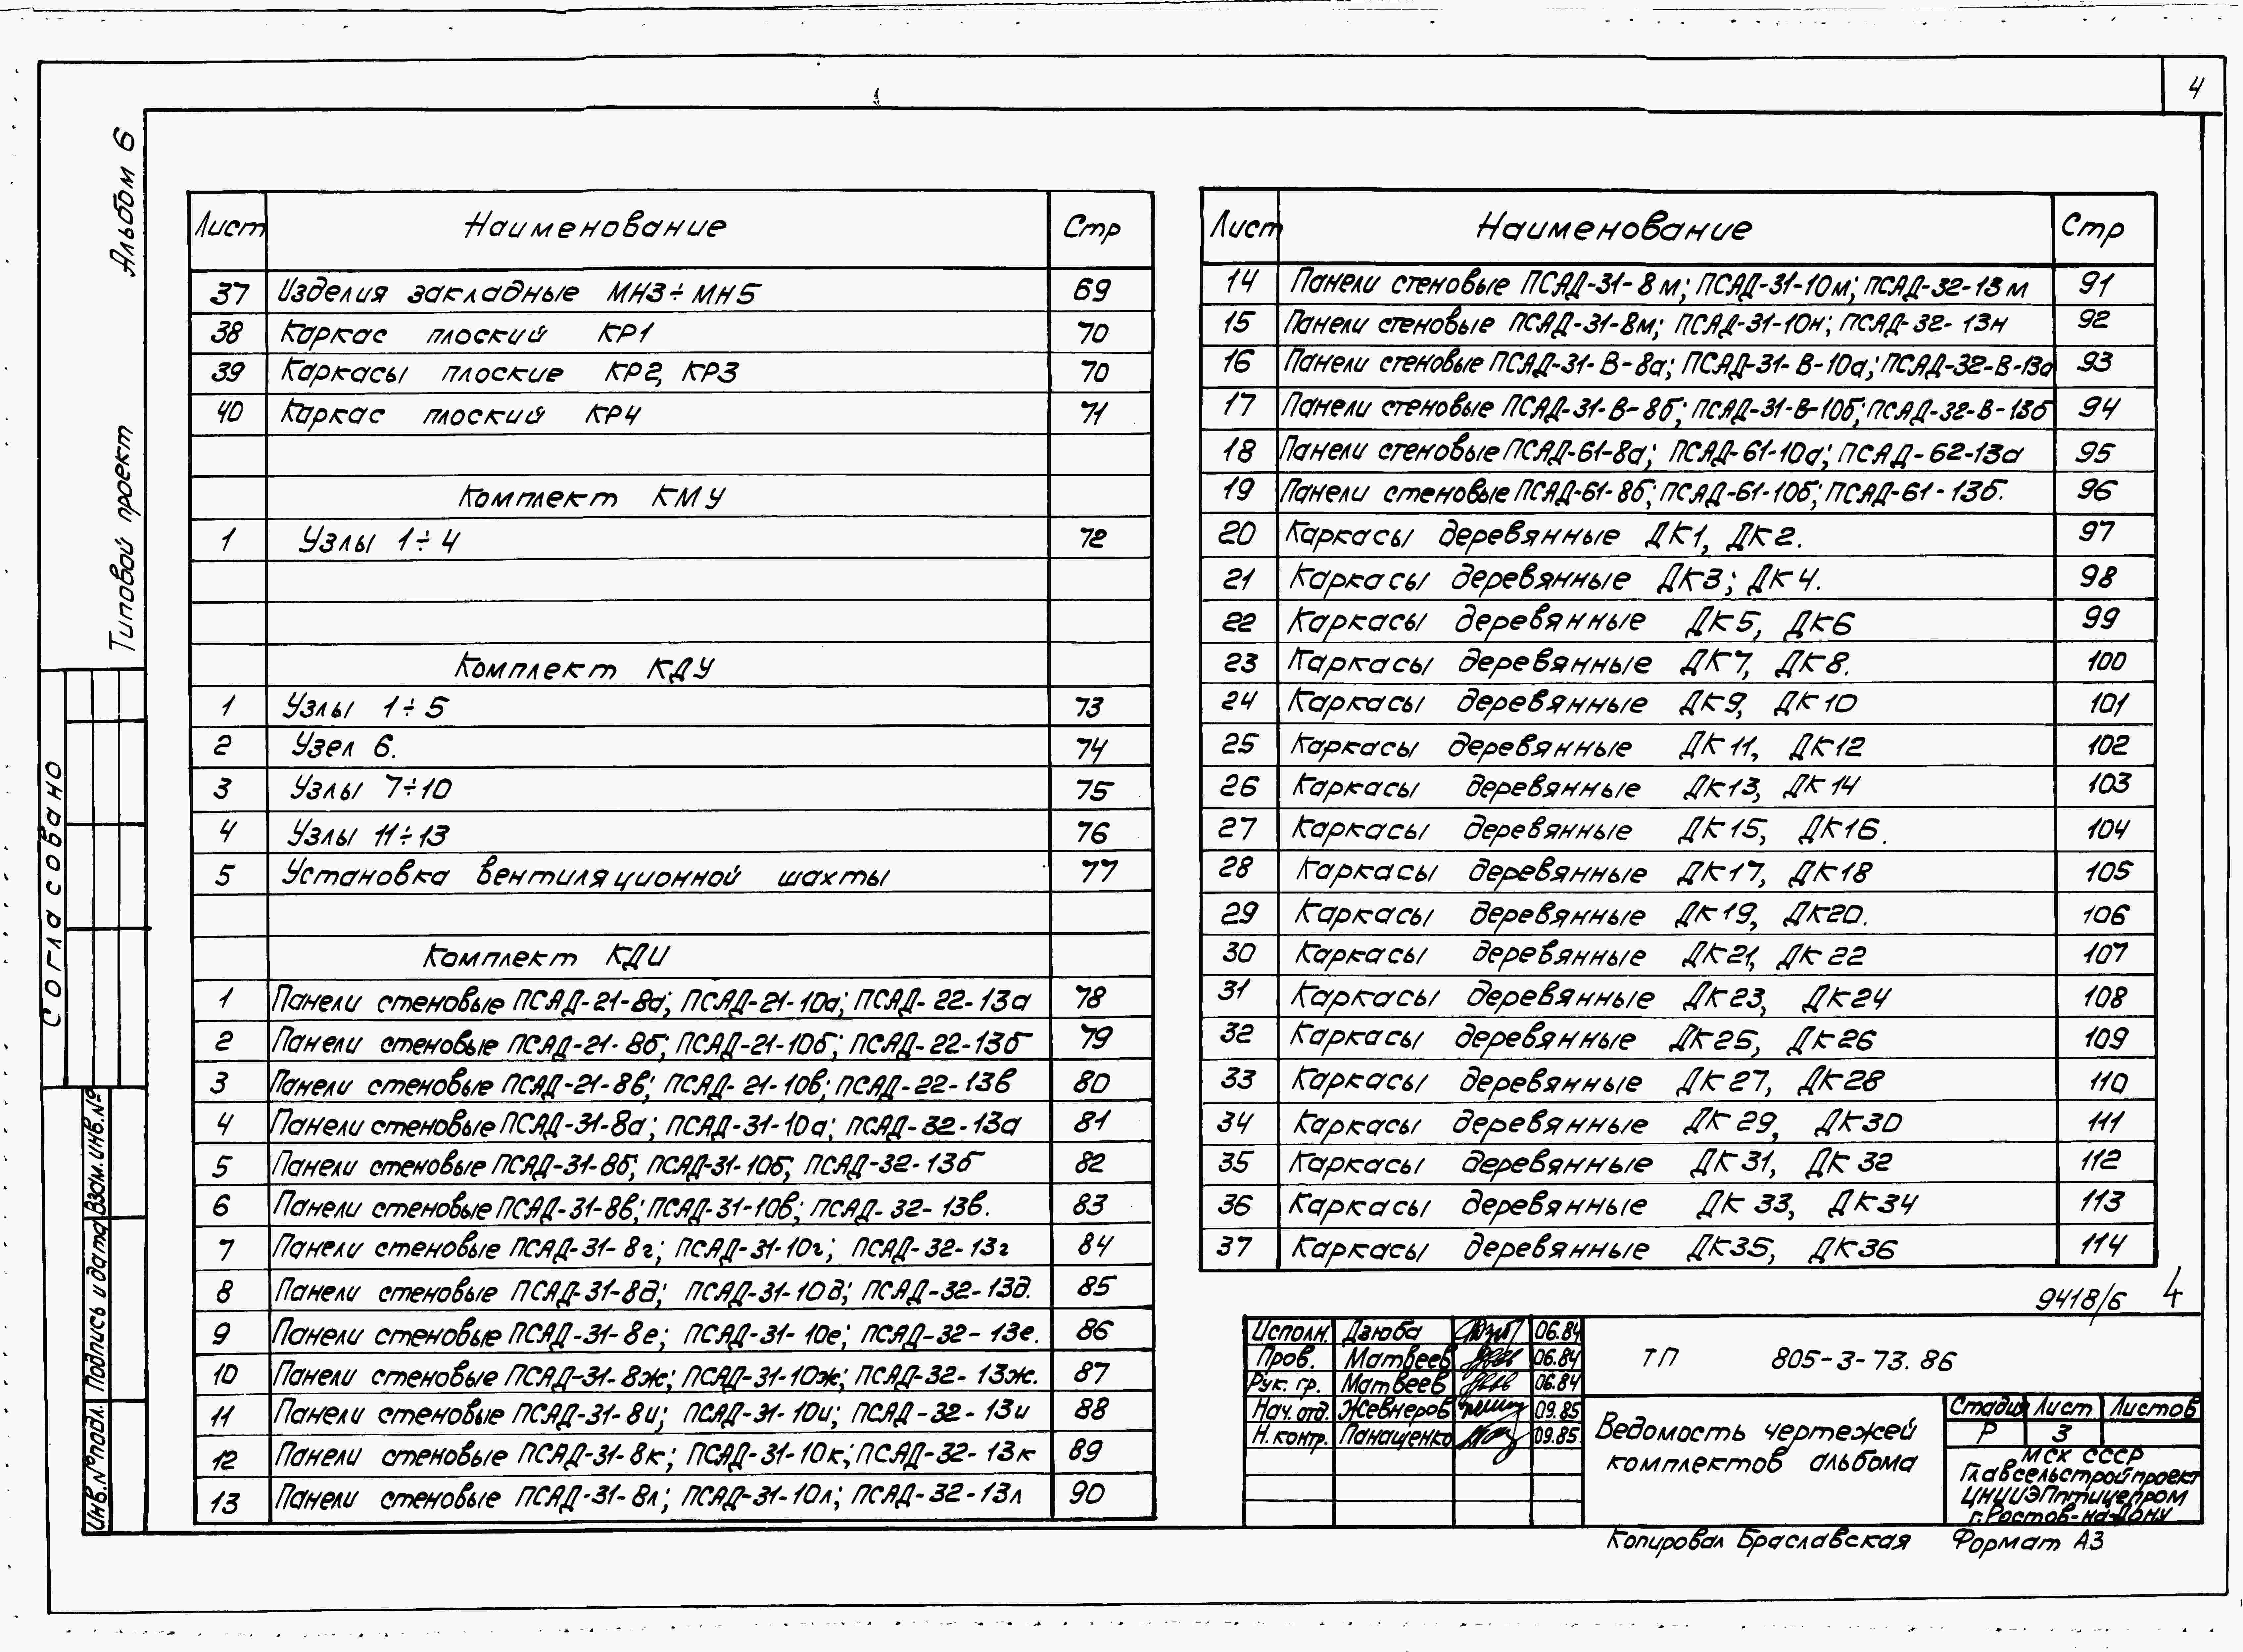 4
Альбом 6
Типовой проект
Согласовано
Взам.инв.№
Подпись и дата
Инв.№ подл.
Лист Наименование Стр
37 Изделия закладные МН3÷МН5 69
38 Каркас плоский КР1 70
39 Каркасы плоские КР2, КР3 70
40 Каркас плоский КР4 71
Комплект КМУ
1 Узлы 1÷4 72
Комплект КДУ
1 Узлы 1÷5 73
2 Узел 6. 74
3 Узлы 7÷10 75
4 Узлы 11÷13 76
5 Установка вентиляционной шахты 77
Комплект КДИ
1 Панели стеновые ПСАД-21-8а; ПСАД-21-10а; ПСАД-22-13а 78
2 Панели стеновые ПСАД-21-8б; ПСАД-21-10б; ПСАД-22-13б 79
3 Панели стеновые ПСАД-21-8в; ПСАД-21-10в; ПСАД-22-13в 80
4 Панели стеновые ПСАД-31-8а; ПСАД-31-10а; ПСАД-32-13а 81
5 Панели стеновые ПСАД-31-8б; ПСАД-31-10б; ПСАД-32-13б 82
6 Панели стеновые ПСАД-31-8в; ПСАД-31-10в; ПСАД-32-13в. 83
7 Панели стеновые ПСАД-31-8г; ПСАД-31-10г; ПСАД-32-13г 84
8 Панели стеновые ПСАД-31-8д; ПСАД-31-10д; ПСАД-32-13д. 85
9 Панели стеновые ПСАД-31-8е; ПСАД-31-10е; ПСАД-32-13е. 86
10 Панели стеновые ПСАД-31-8ж; ПСАД-31-10ж; ПСАД-32-13ж. 87
11 Панели стеновые ПСАД-31-8и; ПСАД-31-10и; ПСАД-32-13и 88
12 Панели стеновые ПСАД-31-8к; ПСАД-31-10к; ПСАД-32-13к 89
13 Панели стеновые ПСАД-31-8л; ПСАД-31-10л; ПСАД-32-13л 90
Лист Наименование Стр
14 Панели стеновые ПСАД-31-8м; ПСАД-31-10м; ПСАД-32-13м 91
15 Панели стеновые ПСАД-31-8м; ПСАД-31-10н; ПСАД-32-13н 92
16 Панели стеновые ПСАД-31-В-8а; ПСАД-31-В-10а; ПСАД-32-В-13а 93
17 Панели стеновые ПСАД-31-В-8б; ПСАД-31-В-10б; ПСАД-32-В-13б 94
18 Панели стеновые ПСАД-61-8а; ПСАД-61-10а; ПСАД-62-13а 95
19 Панели стеновые ПСАД-61-8б; ПСАД-61-10б; ПСАД-61-13б. 96
20 Каркасы деревянные ДК1, ДК2. 97
21 Каркасы деревянные ДК3; ДК4. 98
22 Каркасы деревянные ДК5, ДК6 99
23 Каркасы деревянные ДК7, ДК8. 100
24 Каркасы деревянные ДК9, ДК10 101
25 Каркасы деревянные ДК11, ДК12 102
26 Каркасы деревянные ДК13, ДК14 103
27 Каркасы деревянные ДК15, ДК16. 104
28 Каркасы деревянные ДК17, ДК18 105
29 Каркасы деревянные ДК19, ДК20. 106
30 Каркасы деревянные ДК21, ДК22 107
31 Каркасы деревянные ДК23, ДК24 108
32 Каркасы деревянные ДК25, ДК26 109
33 Каркасы деревянные ДК27, ДК28 110
34 Каркасы деревянные ДК29, ДК30 111
35 Каркасы деревянные ДК31, ДК32 112
36 Каркасы деревянные ДК33, ДК34 113
37 Каркасы деревянные ДК35, ДК36 114
9418/6 4
Исполн. Дзюба 06.84
Пров. Матвеев 06.84
Рук. гр. Матвеев 06.84
Нач. отд. Жевнеров 09.85
Н. контр. Панащенко 09.85
ТП 805-3-73.86
Ведомость чертежей
комплектов альбома
Стадия Лист Листов
Р 3
МСХ СССР
Главсельстройпроект
ЦНИИЭПптицепром
г. Ростов-на-Дону
Копировал Браславская Формат А3